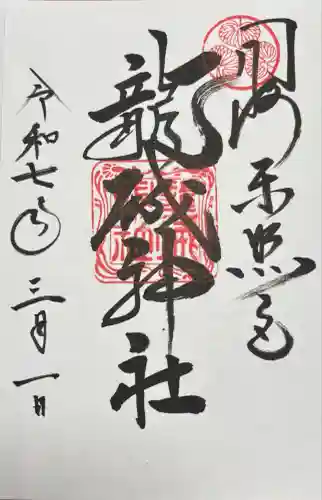 岡崎東照宮
龍城神社
令和七年三月一日